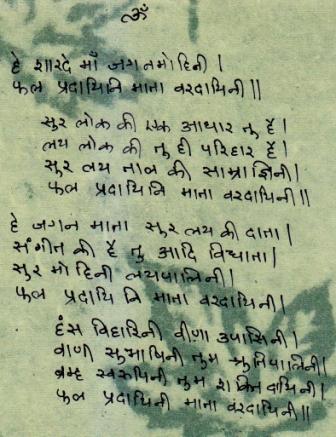 ॐ
हे शारदे माँ जगतमोहिनी।
फल प्रदायिनि माता वरदायिनी॥
सुर लोक की एक आधार तु है।
लय लोक की तु ही परिहार है।
सुर लय ताल की साम्राज्ञिनी।
फल प्रदायिनि माता वरदायिनी॥
हे जगन माता सुर लय की दाता।
संगीत की है तु आदि विधाता।
सुर मोहिनी लयपालिनी।
फल प्रदायिनि माता वरदायिनी।
हंस विहारिनी वीणा उपासिनी।
वाणी सुभाषिनी तुम श्रुतिपालिनी।
ब्रम्ह स्वरुपिनी तुम शक्तिदायिनी।
फल प्रदायिनी माता वरदायिनी॥